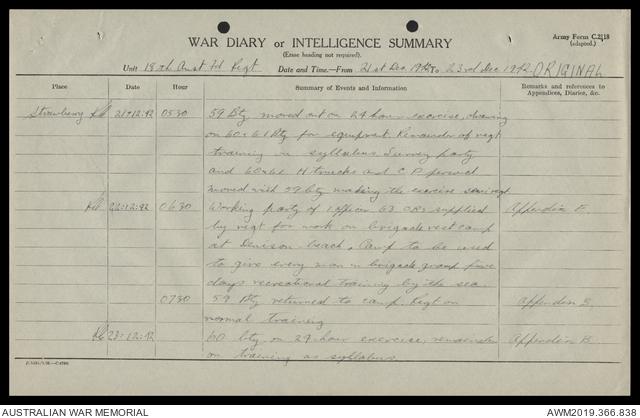 Army Form C.2118
(adapted.)
WAR DIARY or INTELLIGENCE SUMMARY
(Erase heading not required).
Unit 18th Aust Fd Regt Date and Time.—From 21st Dec 1942 To 23rd Dec 1942 ORIGINAL
Place Date Hour Summary of Events and Information Remarks and references to
Appendices, Diaries, &c.
Strawberry Rd 21:12:42 0530 59 Bty moved out on 24 hour exercise, drawing
on 60 & 61 Bty for equipment. Remainder of regt
training on syllabus. Survey party
and 60 & 61 H trucks and C.P. personnel
moved with 59 bty making the exercise semi regt.
22:12:42 0630 Working party of 1 officer 63 ORs supplied Appendix F.
by regt for work on brigade rest camp
at Denison beach. Camp to be used
to give every man in brigade group five
days recreational training by the sea.
0730 59 Bty returned to camp. Regt on
normal training
23:12:42 60 bty on 24 hour exercise, remainder Appendix B.
on training as syllabus.
AUSTRALIAN WAR MEMORIAL
AWM2019.366.838